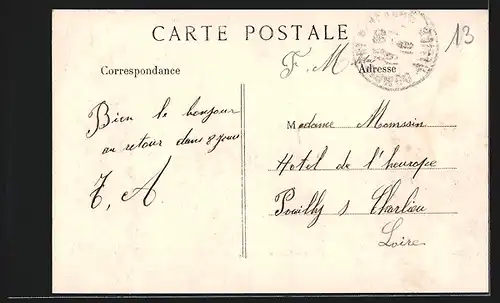 CARTE POSTALE
13
F. M.
Correspondance
Adresse
Bien le bonjour
au retour dans 8 jours
T, A
Madame Momssin
Hotel de l'heurope
Pouilly s Charlieu
Loire